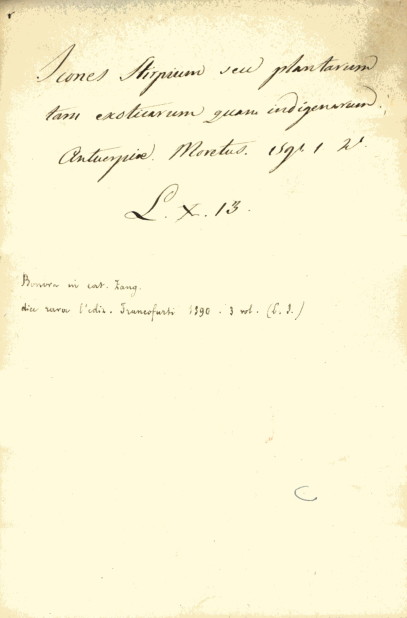 Icones Stirpium seu plantarum
tam exoticarum quam indigenarum.
Antuerpiæ. Moretus. 1591
L. X. 13.
in cat.
rara l'ediz. Francofurti 1590. 3 vol.
C